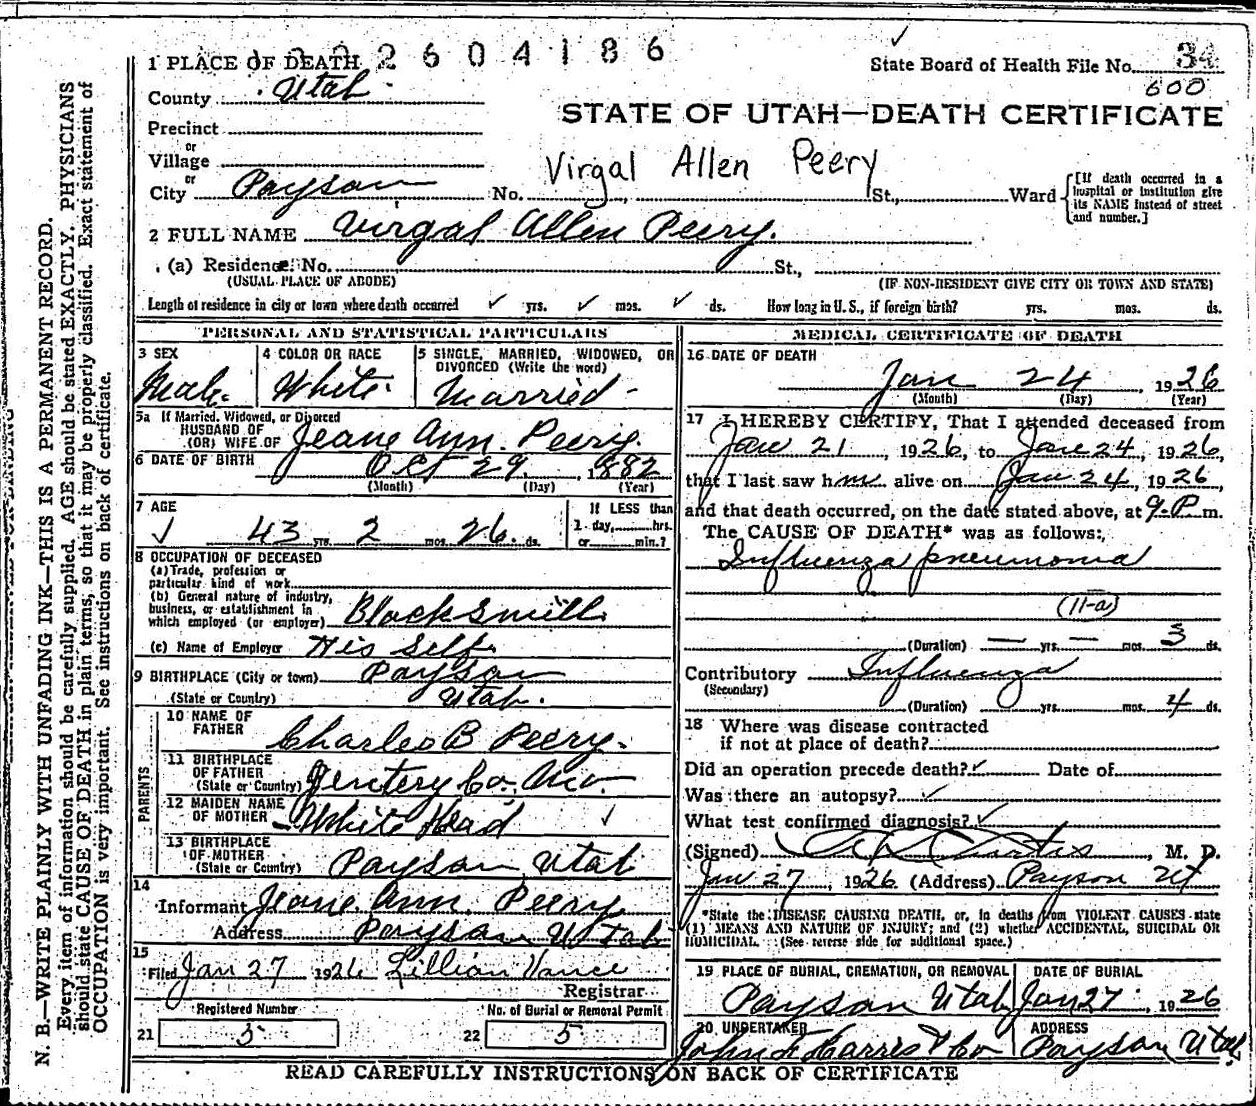 2604186
1 PLACE OF DEATH
State Board of Health File No. 34
600
County Utah
STATE OF UTAH—DEATH CERTIFICATE
Precinct
or
Village
Virgal Allen Peery
or
City Payson No. St., Ward [If death occurred in a hospital or institution give its NAME instead of street and number.]
2 FULL NAME Virgal Allen Peery.
(a) Residence. No. St.,
(USUAL PLACE OF ABODE) (IF NON-RESIDENT GIVE CITY OR TOWN AND STATE)
Length of residence in city or town where death occurred ✓ yrs. ✓ mos. ✓ ds. How long in U.S., if foreign birth? yrs. mos. ds.
PERSONAL AND STATISTICAL PARTICULARS
3 SEX
Male
4 COLOR OR RACE
White
5 SINGLE, MARRIED, WIDOWED, OR
DIVORCED (Write the word)
Married
5a If Married, Widowed, or Divorced
HUSBAND OF
(OR) WIFE OF Jeane Ann Peery.
6 DATE OF BIRTH Oct 29, 1882
(Month) (Day) (Year)
7 AGE
✓ 43 yrs. 2 mos. 26 ds.
If LESS than
1 day, hrs.
or min.?
8 OCCUPATION OF DECEASED
(a) Trade, profession or
particular kind of work
(b) General nature of industry,
business, or establishment in
which employed (or employer) Blacksmith
(c) Name of Employer His Self.
9 BIRTHPLACE (City or town) Payson
(State or Country) Utah.
PARENTS
10 NAME OF
FATHER Charles B Peery.
11 BIRTHPLACE
OF FATHER
(State or Country) Co. Mo.
12 MAIDEN NAME
OF MOTHER White Head ✓
13 BIRTHPLACE
OF MOTHER
(State or Country) Payson, Utah
14
Informant Jeane Ann Peery
Address Payson Utah
15
Filed Jan 27 1926 Lillian Vance
Registrar
Registered Number
21 5
No. of Burial or Removal Permit
22 5
MEDICAL CERTIFICATE OF DEATH
16 DATE OF DEATH
Jan 24, 1926
(Month) (Day) (Year)
17 I HEREBY CERTIFY, That I attended deceased from
Jan 21, 1926, to Jan 24, 1926,
that I last saw him alive on Jan 24, 1926,
and that death occurred, on the date stated above, at 9-P m.
The CAUSE OF DEATH* was as follows:
Influenza pneumonia
(11-a)
(Duration) — yrs. — mos. 3 ds.
Contributory Influenza
(Secondary)
(Duration) yrs. mos. 4 ds.
18 Where was disease contracted
if not at place of death?
Did an operation precede death? ✓ Date of
Was there an autopsy? ✓
What test confirmed diagnosis? ✓
(Signed) Curtis, M. D.
Jan 27, 1926 (Address) Payson Ut
*State the DISEASE CAUSING DEATH, or, in deaths from VIOLENT CAUSES state
(1) MEANS AND NATURE OF INJURY; and (2) whether ACCIDENTAL, SUICIDAL OR
HOMICIDAL. (See reverse side for additional space.)
19 PLACE OF BURIAL, CREMATION, OR REMOVAL
Payson Utah
DATE OF BURIAL
Jan 27 1926
20 UNDERTAKER
John F Harris & Co
ADDRESS
Payson Utah.
READ CAREFULLY INSTRUCTIONS ON BACK OF CERTIFICATE
N. B.—WRITE PLAINLY WITH UNFADING INK—THIS IS A PERMANENT RECORD.
Every item of information should be carefully supplied. AGE should be stated EXACTLY. PHYSICIANS
should state CAUSE OF DEATH in plain terms, so that it may be properly classified. Exact statement of
OCCUPATION is very important. See instructions on back of certificate.